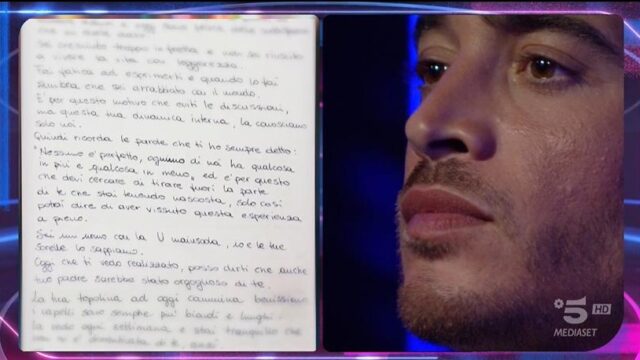 sei cresciuto troppo in fretta e non sei riuscito
a vivere la vita con leggerezza.
Fai fatica ad esprimerti e quando lo fai
sembra che sei arrabbiato con il mondo.
E' per questo motivo che eviti le discussioni,
ma questa tua dinamica interna, la conosciamo
solo noi.
Quindi ricorda le parole che ti ho sempre detto:
"Nessuno e' perfetto, ognuno di noi ha qualcosa
in più e qualcosa in meno", ed e' per questo
che devi cercare di tirare fuori la parte
di te che stai tenendo nascosta, solo così
potrai dire di aver vissuto questa esperienza
a pieno.
Sei un uomo con la U maiuscola, io e le tue
sorelle lo sappiamo.
Oggi che ti vedo realizzato, posso dirti che anche
tuo padre sarebbe stato orgoglioso di te.
La tua topolina ad oggi cammina benissimo
i capelli sono sempre più biondi e lunghi.
La vedo ogni settimana e stai tranquillo che
non si e' dimenticata di te,
5 HD
MEDIASET